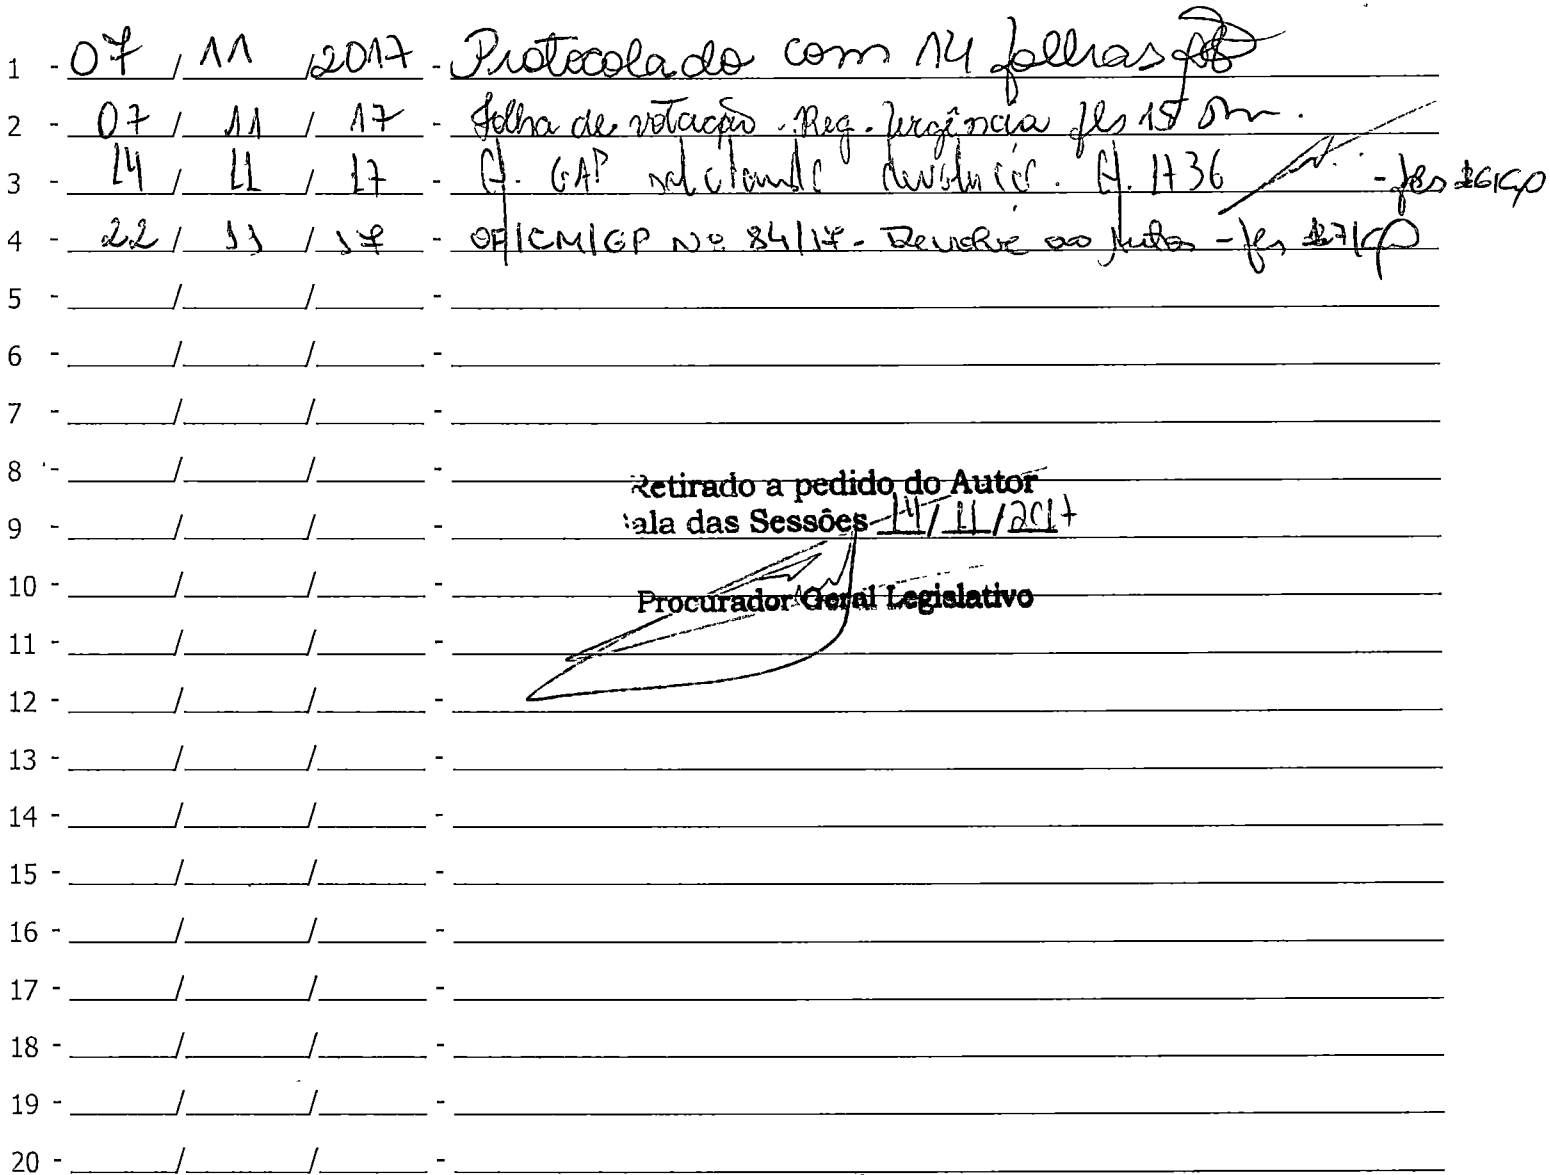 1 - 07 / 11 / 2017 - Protocolado com 14 folhas
2 - 07 / 11 / 17 - Folha de votação. Req. Urgência fls 15
3 - 14 / 11 / 17 - Of. GAP solicitando devolução. Of. 1736 - fls 16/GP
4 - 22 / 11 / 17 - OF/CM/GP Nº 84/17 - Devolve ao Autor - fls 17/GP
5 - / / -
6 - / / -
7 - / / -
8 - / / -
Retirado a pedido do Autor
9 - / / -
ala das Sessões 14/11/2017
10 - / / -
Procurador Geral Legislativo
11 - / / -
12 - / / -
13 - / / -
14 - / / -
15 - / / -
16 - / / -
17 - / / -
18 - / / -
19 - / / -
20 - / / -